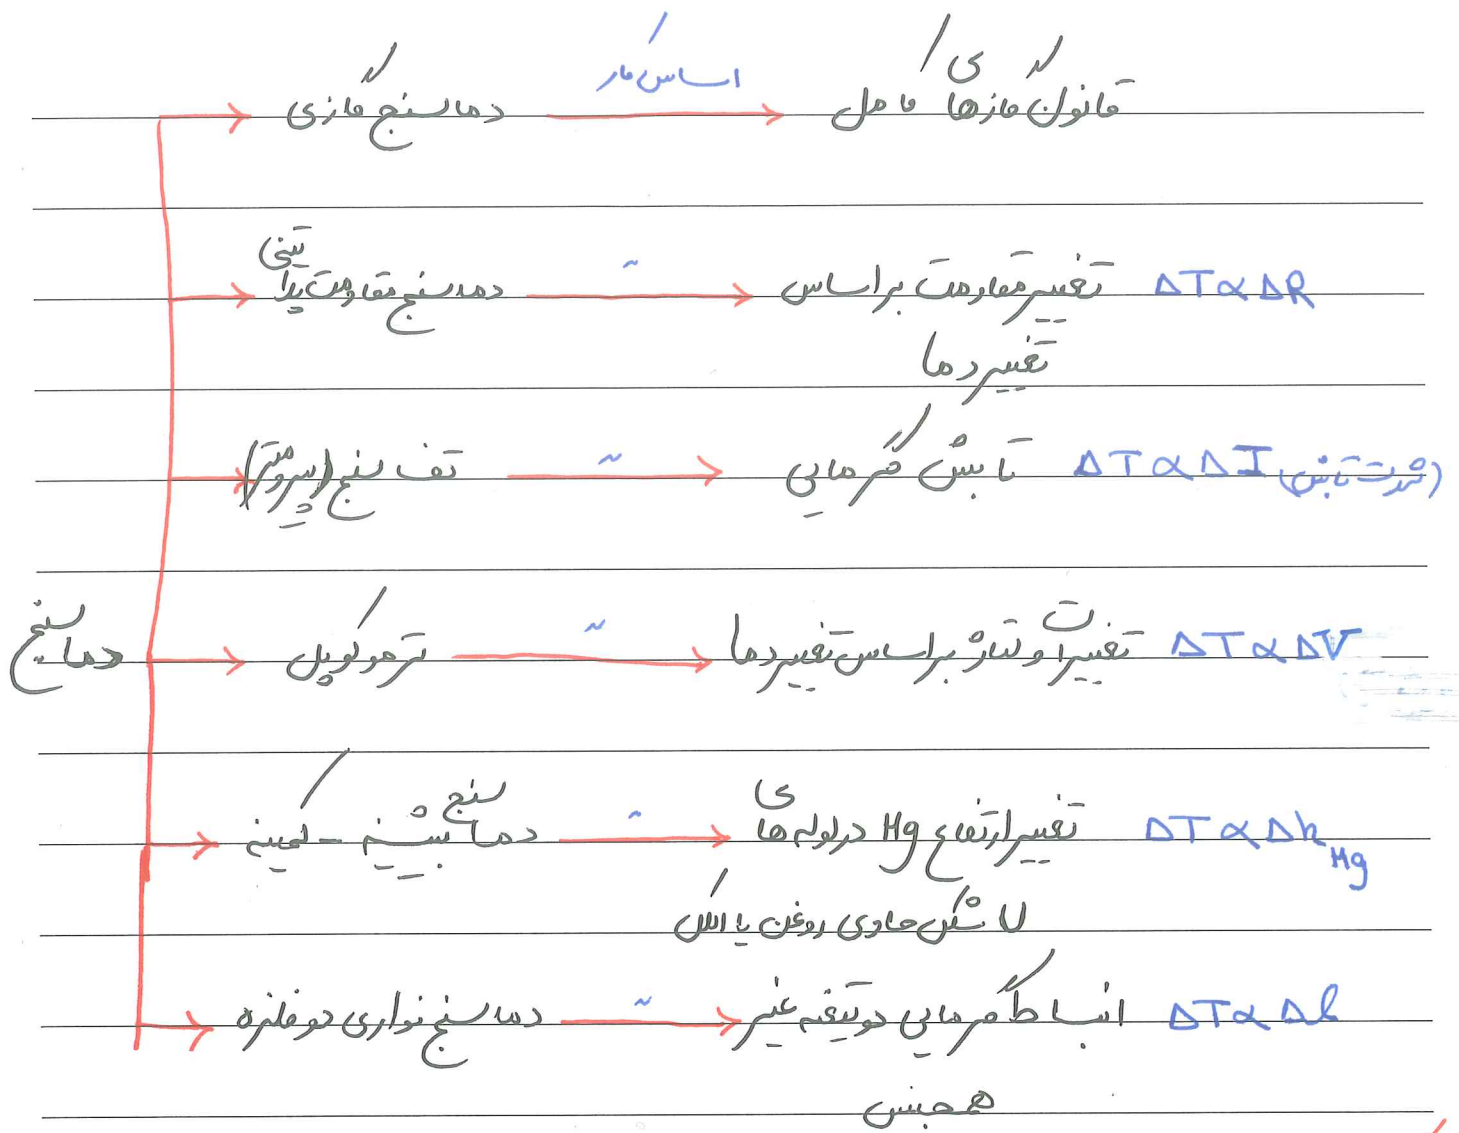 دماسنج
دماسنج گازی ← اساس کار ← قانون گازهای کامل
دماسنج مقاومت پلاتینی ← " ← تغییر مقاومت براساس ΔT ∝ ΔR
تغییر دما
تف سنج (پیرومتر) ← " ← تابش گرمایی ΔT ∝ ΔI (شدت تابش)
ترموکوپل ← " ← تغییرات ولتاژ براساس تغییر دما ΔT ∝ ΔV
دماسنج بیشینه - کمینه ← " ← تغییر ارتفاع Hg در لوله های ΔT ∝ Δh Hg
U شکل حاوی روغن یا الکل
دماسنج نواری دو فلزه ← " ← انبساط گرمایی دو تیغه غیر ΔT ∝ Δl
همجنس